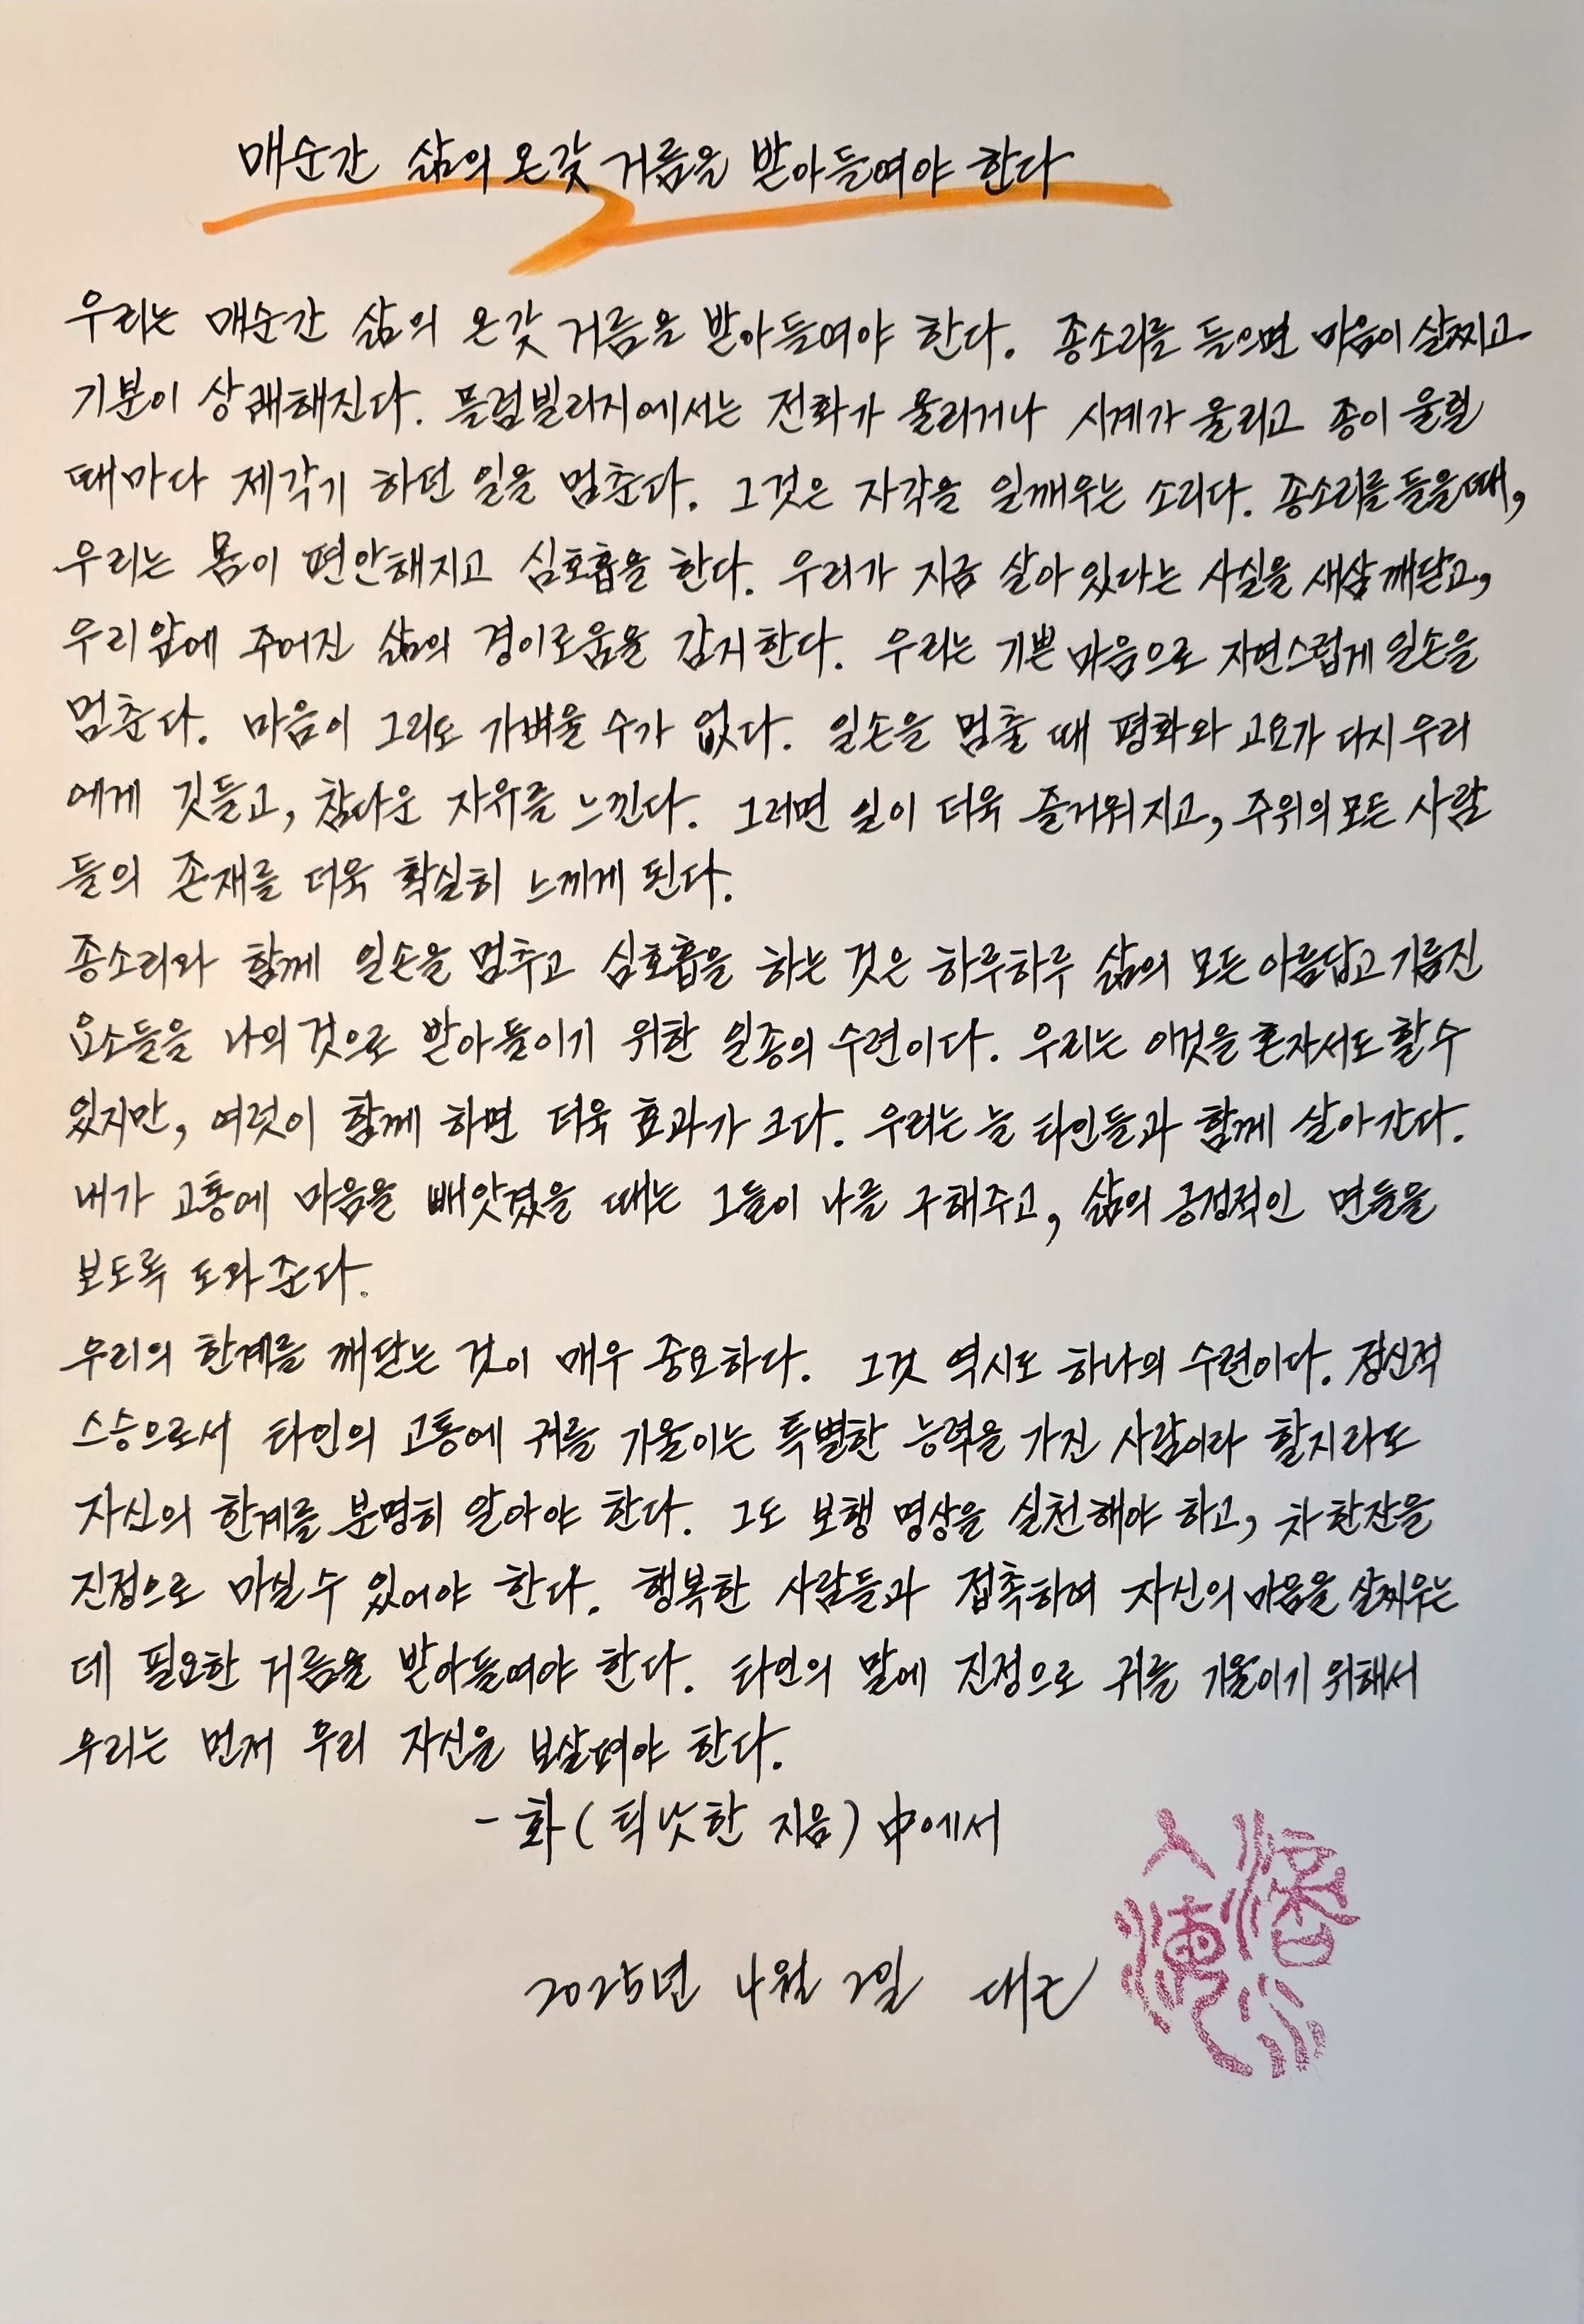 매순간 삶의 온갖 거름을 받아들여야 한다
우리는 매순간 삶의 온갖 거름을 받아들여야 한다. 종소리를 들으면 마음이 살찌고
기분이 상쾌해진다. 플럼빌리지에서는 전화가 울리거나 시계가 울리고 종이 울릴
때마다 제각기 하던 일을 멈춘다. 그것은 자각을 일깨우는 소리다. 종소리를 들을때,
우리는 몸이 편안해지고 심호흡을 한다. 우리가 지금 살아 있다는 사실을 새삼 깨닫고,
우리 앞에 주어진 삶의 경이로움을 감지한다. 우리는 기쁜 마음으로 자연스럽게 일손을
멈춘다. 마음이 그리도 가벼울 수가 없다. 일손을 멈출 때 평화와 고요가 다시 우리
에게 깃들고, 참다운 자유를 느낀다. 그러면 일이 더욱 즐거워지고, 주위의 모든 사람
들의 존재를 더욱 확실히 느끼게 된다.
종소리와 함께 일손을 멈추고 심호흡을 하는 것은 하루하루 삶의 모든 아름답고 기름진
요소들을 나의 것으로 받아들이기 위한 일종의 수련이다. 우리는 이것을 혼자서도 할수
있지만, 여럿이 함께 하면 더욱 효과가 크다. 우리는 늘 타인들과 함께 살아간다.
내가 고통에 마음을 빼앗겼을 때는 그들이 나를 구해주고, 삶의 긍정적인 면들을
보도록 도와준다.
우리의 한계를 깨닫는 것이 매우 중요하다. 그것 역시도 하나의 수련이다. 정신적
스승으로서 타인의 고통에 귀를 기울이는 특별한 능력을 가진 사람이라 할지라도
자신의 한계를 분명히 알아야 한다. 그도 보행 명상을 실천해야 하고, 차 한잔을
진정으로 마실 수 있어야 한다. 행복한 사람들과 접촉하여 자신의 마음을 살찌우는
데 필요한 거름을 받아들여야 한다. 타인의 말에 진정으로 귀를 기울이기 위해서
우리는 먼저 우리 자신을 보살펴야 한다.
- 화 ( 틱낫한 지음 ) 中에서
2025년 4월 2일